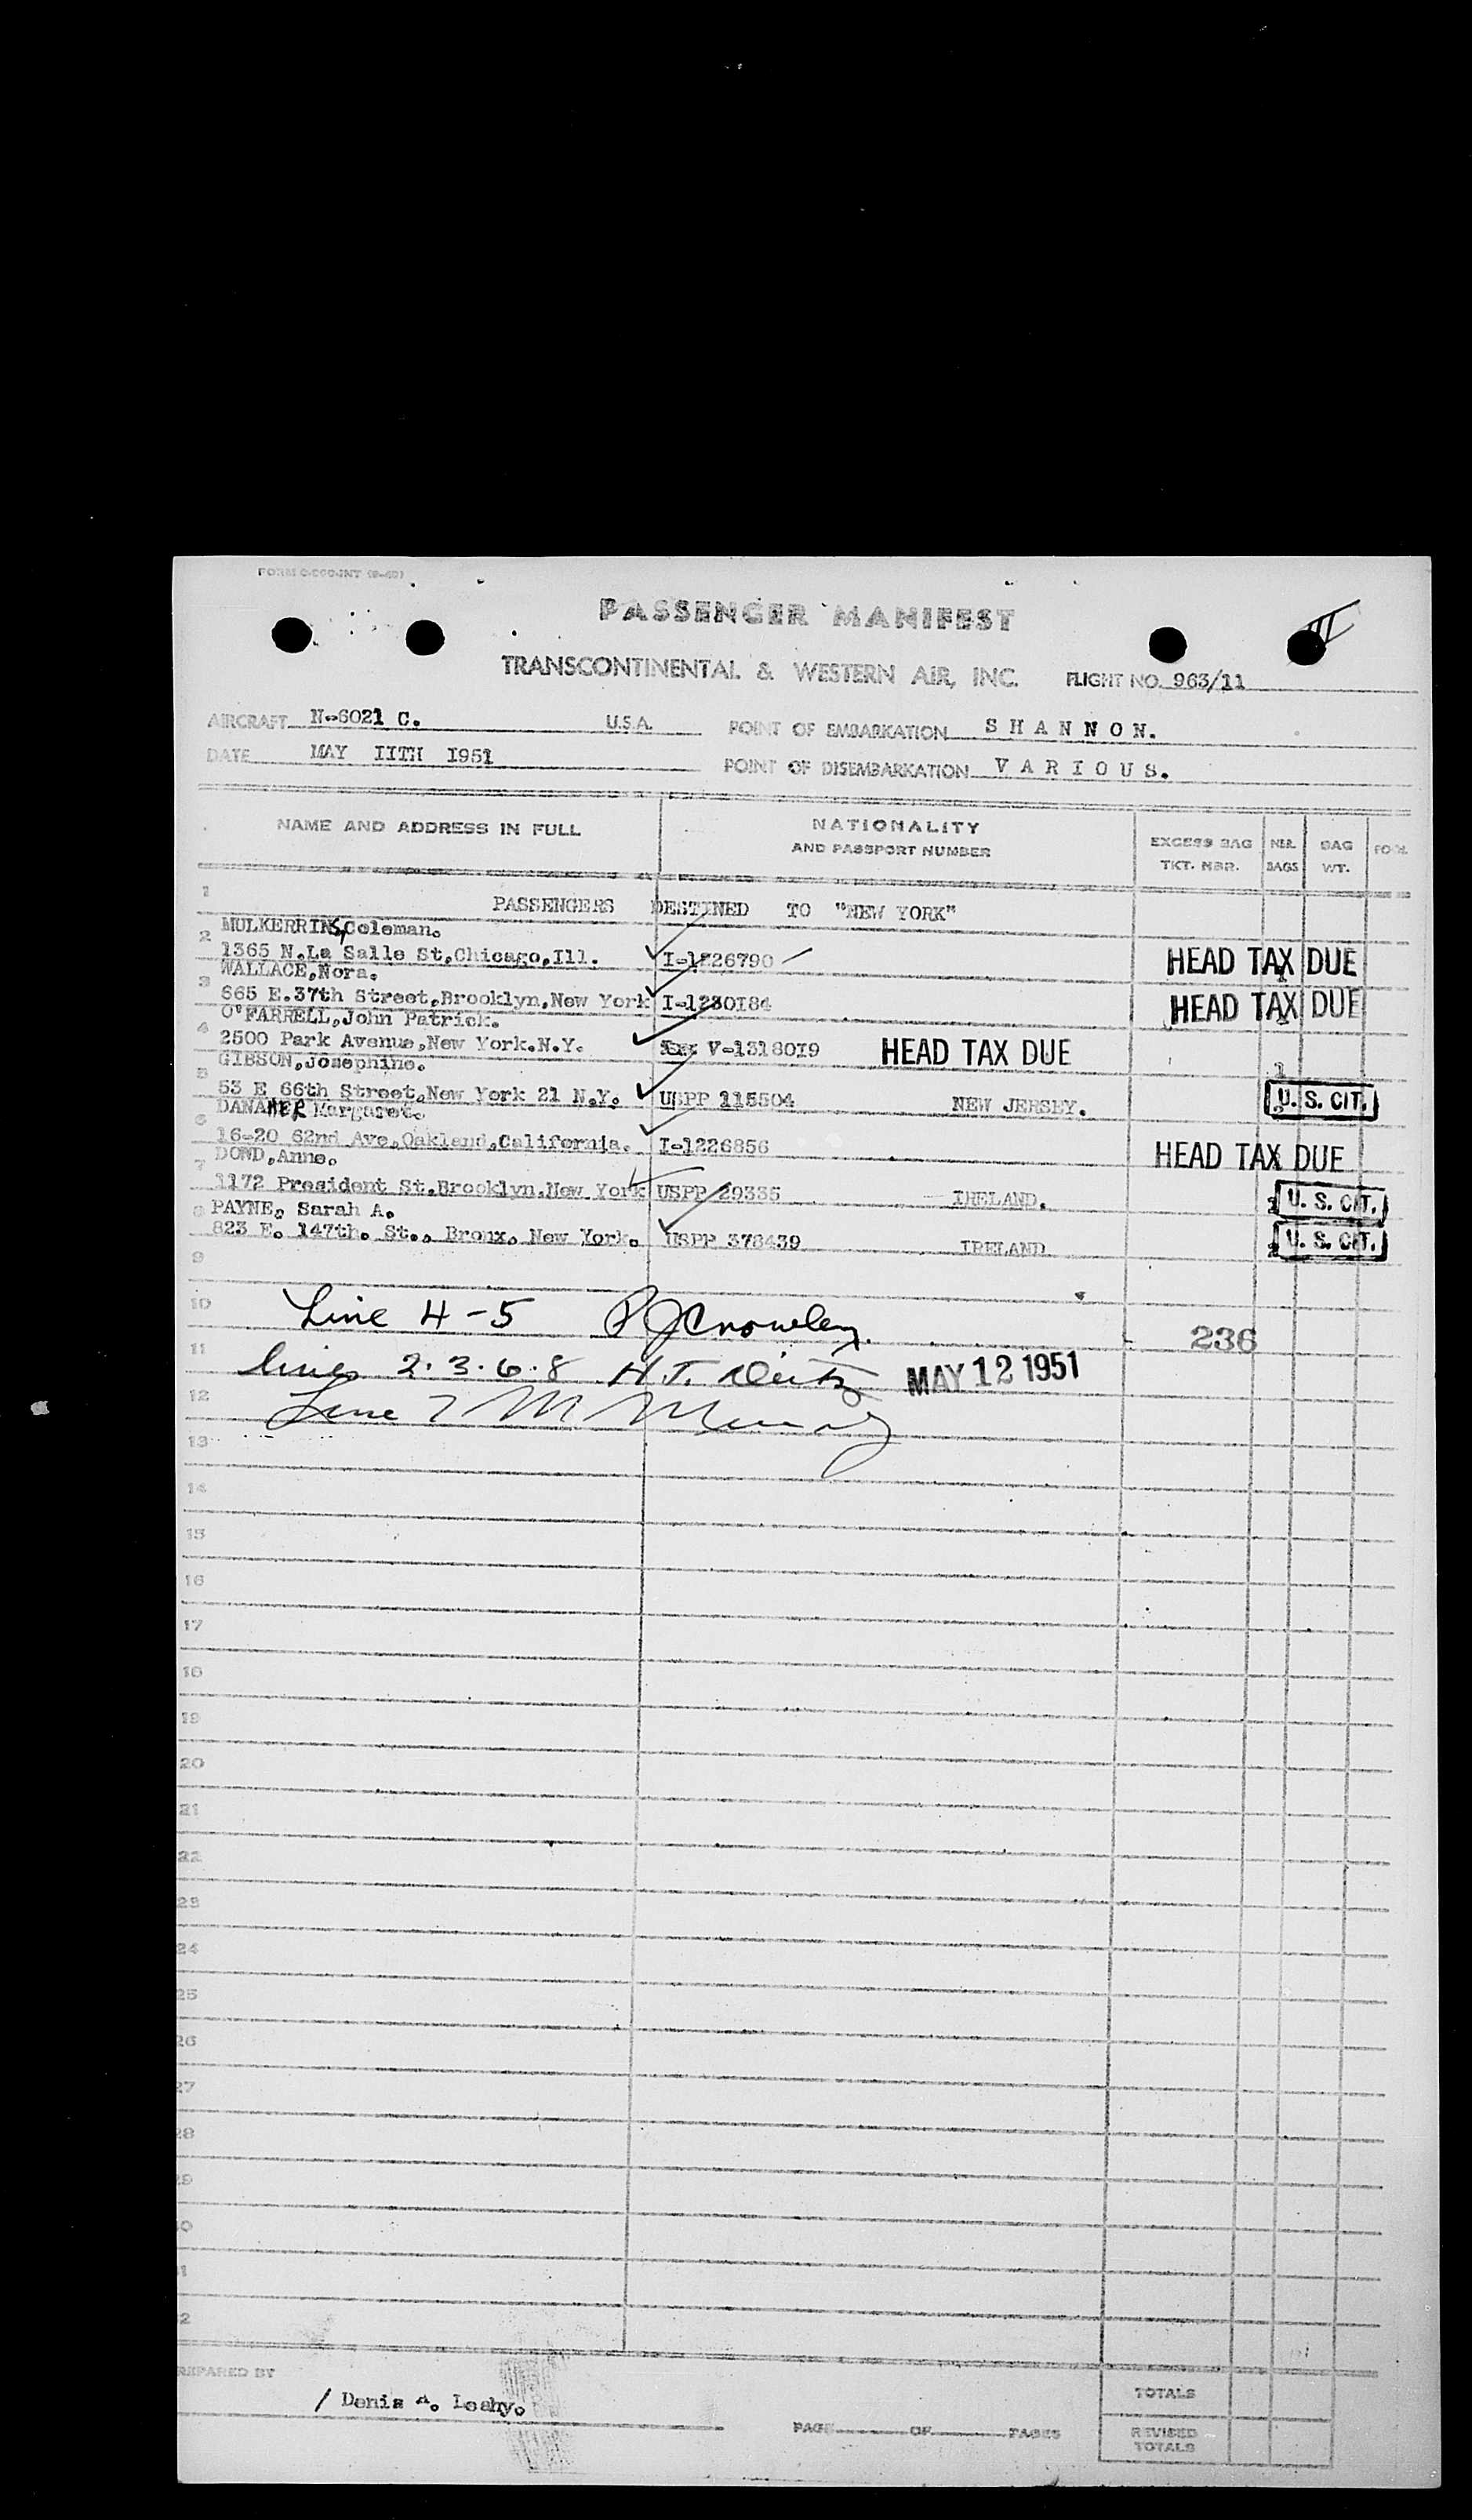 FORM
PASSENGER MANIFEST
TRANSCONTINENTAL & WESTERN AIR, INC. FLIGHT NO. 963/11
AIRCRAFT N-6021 C. U.S.A. POINT OF EMBARKATION S H A N N O N.
DATE MAY IITH I951 POINT OF DISEMBARKATION V A R I O U S.
NAME AND ADDRESS IN FULL NATIONALITY AND PASSPORT NUMBER EXCESS BAG TKT. NBR. NBR. BAGS BAG WT.
1 PASSENGERS DESTINED TO "NEW YORK"
MULKERRINS,Coleman.
2 1365 N.La Salle St,Chicago,Ill. I-1226790 HEAD TAX DUE
WALLACE,Nora.
3 665 E.37th Street,Brooklyn,New York I-1230I84 HEAD TAX DUE
O'FARRELL,John Patrick.
4 2500 Park Avenue,New York.N.Y. V-13180I9 HEAD TAX DUE
GIBSON,Josephine. 1
5 53 E 66th Street,New York 21 N.Y. USPP 115504 NEW JERSEY. U. S. CIT.
DANAHER Margaret.
6 16-20 62nd Ave,Oakland,California. I-1226856 HEAD TAX DUE
DOWD,Anne.
7 1172 President St.Brooklyn.New York USPP 29335 IRELAND. U. S. CIT.
PAYNE, Sarah A.
8 823 E. 147th. St., Bronx. New York. USPP 378439 IRELAND U. S. CIT.
9
10 Line 4-5 P J Crowley. 236
11 lines 2.3.6.8 H.T. MAY 12 1951
12 Line 7 M
13
14
15
16
17
18
19
20
21
22
23
24
25
26
27
28
29
30
31
32
PREPARED BY
/ Denis A. Leahy.
TOTALS
PAGE OF PAGES
REVISED TOTALS